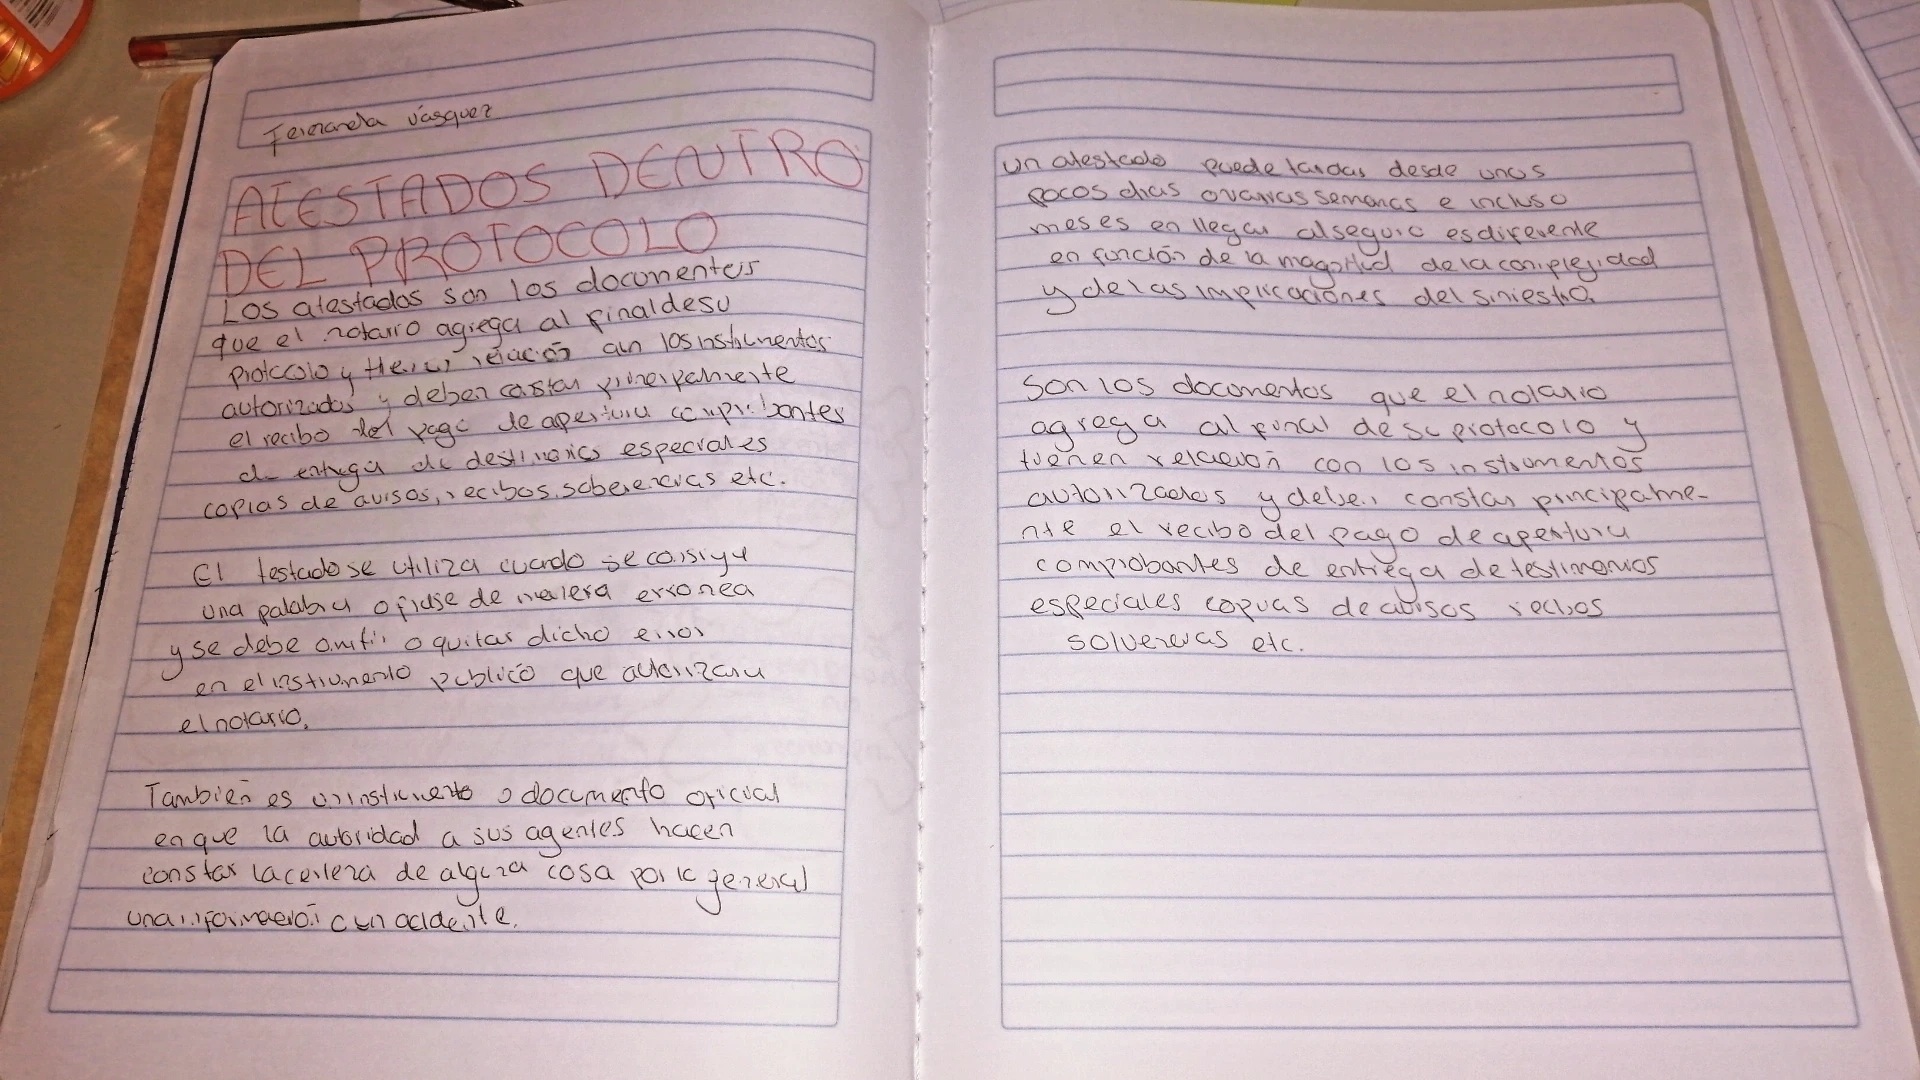 Fernanda Vásquez
ATESTADOS DENTRO
DEL PROTOCOLO
Los atestados son los documentos
que el notario agrega al final de su
protocolo y relación con los instrumentos
autorizados y deben constar principalmente
el recibo del pago de apertura comprobantes
de entrega de especiales
copias de avisos, recibos, etc.
El testado se utiliza cuando se consigna
una palabra o frase de manera erronea
y se debe omitir o quitar dicho error
en el instrumento publico que autorizara
el notario.
También es un instrumento o documento oficial
en que la autoridad a sus agentes hacen
constar la certeza de alguna cosa por lo general
una información o un accidente.
un atestado puede tardar desde unos
pocos dias o varias semanas e incluso
meses en llegar al seguro es diferente
en función de la magnitud de la complejidad
y de las implicaciones del siniestro.
Son los documentos que el notario
agrega al final de su protocolo y
tienen relación con los instrumentos
autorizados y deben constar principalme-
nte el recibo del pago de apertura
comprobantes de entrega de testimonios
especiales copias de avisos recibos
etc.